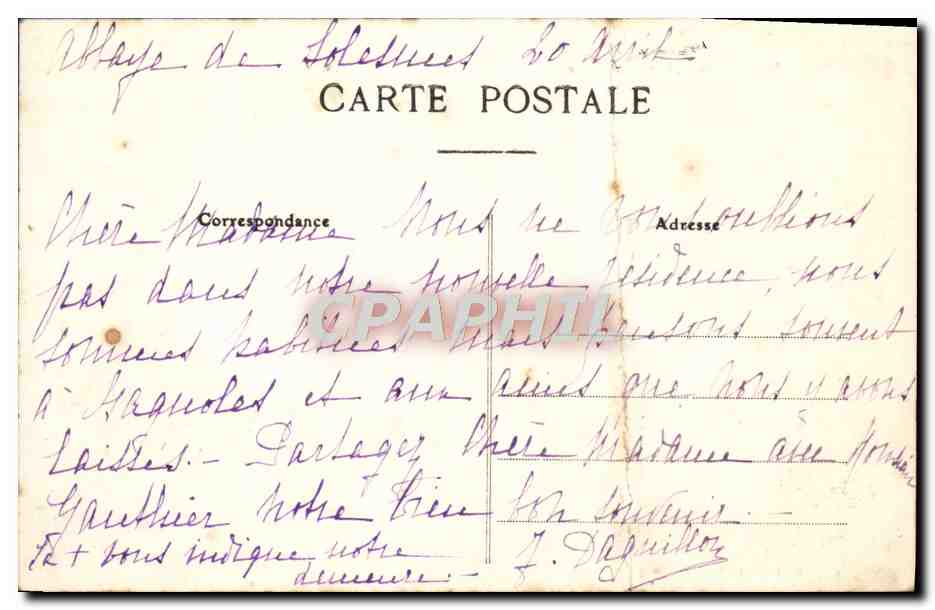 Abbaye de Solesmes 20 Avril
CARTE POSTALE
Correspondance
Adresse
Chère Madame Nous ne vous oublions
pas dans notre nouvelle résidence, nous
sommes habituées mais pensons souvent
à Bagnoles et aux amies que nous y avons
laissés. - Partagez Chère Madame avec Monsieur
Gauthier notre bien bon souvenir. -
La + vous indique notre
demeure. - J. Daguillon
CPAPHIL